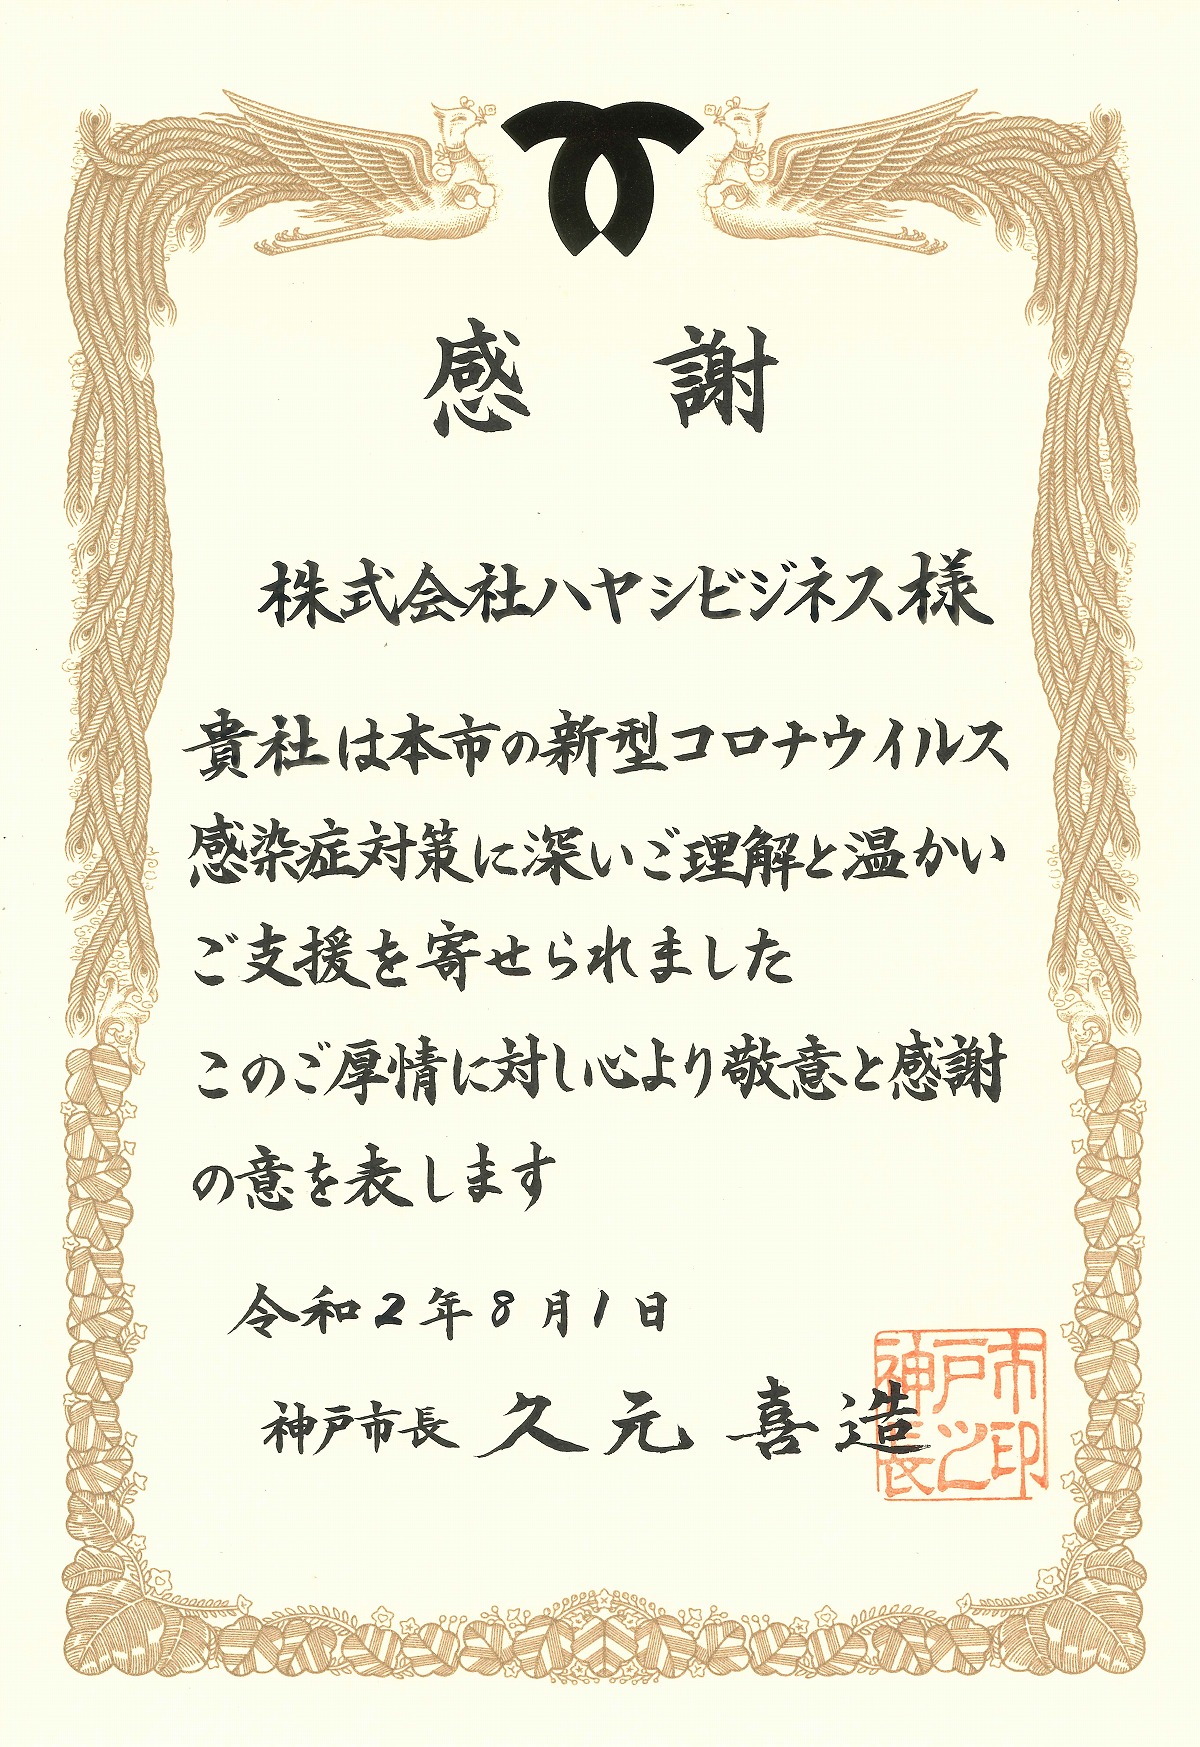 感謝
株式会社ハヤシビジネス様
貴社は本市の新型コロナウイルス
感染症対策に深いご理解と温かい
ご支援を寄せられました
このご厚情に対し心より敬意と感謝
の意を表します
令和2年8月1日
神戸市長 久元 喜造
神戸市
長之印